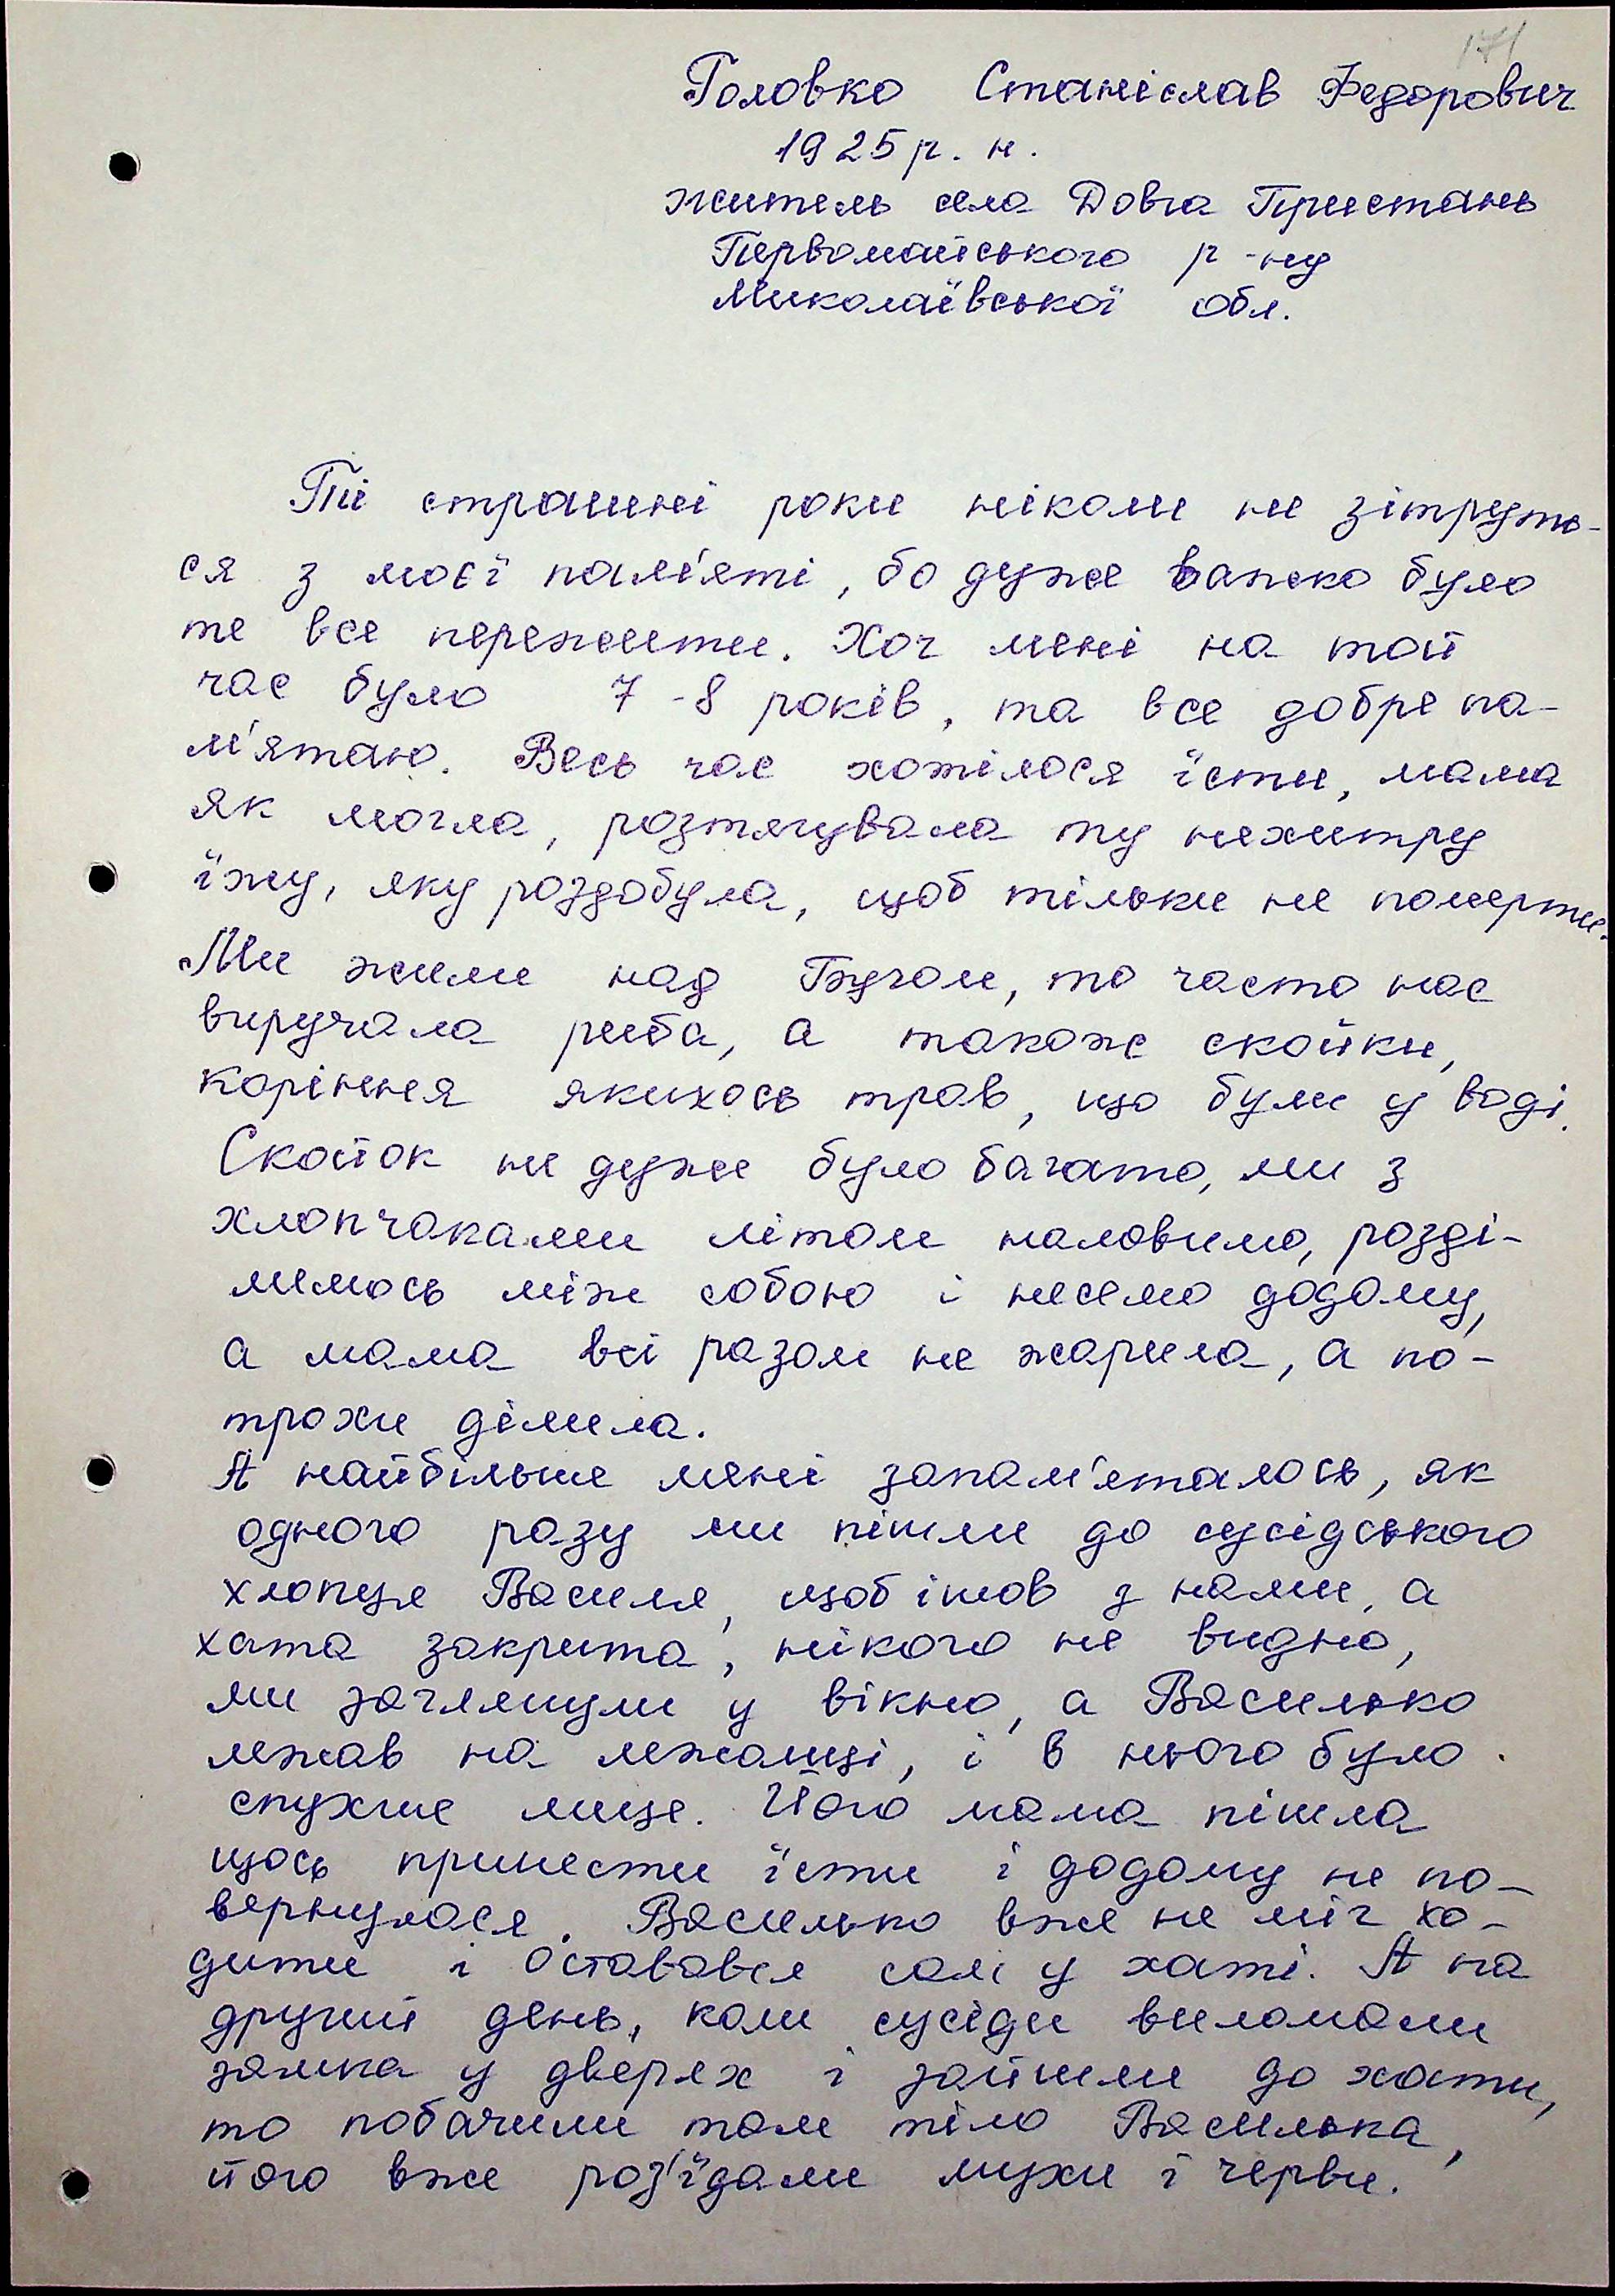 171
Головко Станіслав Федорович
1925 р. н.
житель села Довга Пристань
Первомайського р-ну
Миколаївської обл.
Ті страшні роки ніколи не зітруть-
ся з моєї пам'яті, бо дуже важко було
те все пережити. Хоч мені на той
час було 7-8 років, та все добре па-
м'ятаю. Весь час хотілося їсти, мама
як могла, розтягувала ту нехитру
їжу, яку роздобула, щоб тільки не померти.
Ми жили над Бугом, то часто нас
виручала риба, а також скойки,
коріння якихось трав, що були у воді.
Скойок не дуже було багато, ми з
хлопчаками літом наловимо, розді-
лимось між собою і несемо додому,
а мама всі разом не жарила, а по-
трохи ділила.
А найбільше мені запам'яталось, як
одного разу ми пішли до сусідського
хлопця Василя, щоб ішов з нами, а
хата закрита, нікого не видно,
ми заглянули у вікно, а Василько
лежав на лежанці, і в нього було
спухше лице. Його мама пішла
щось принести їсти і додому не по-
вернулася. Василько вже не міг хо-
дити і оставався самі у хаті. А на
другий день, коли сусіди виломали
замка у дверях і зайшли до хати,
то побачили там тіло Василька,
його вже роз'їдали мухи і черви.